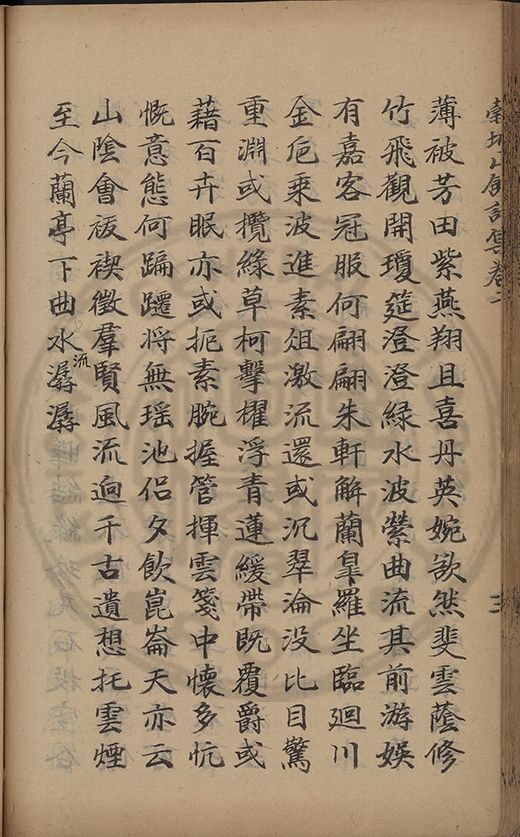 薄被芳田紫燕翔且喜丹英婉欲然斐雲蔭修
竹飛觀開瓊筵澄澄綠水波縈曲流其前游娛
有嘉客冠服何翩翩朱軒解蘭皐羅坐臨迴川
金卮乘波進素俎激流還或沉翠淪没比目驚
重淵或攬綠草柯擊櫂浮青蓮緩帶既覆爵或
藉百卉眠亦或扼素腕握管揮雲箋中懷多忼
慨意態何蹁躚將無瑶池侶夕飲崑崙天亦云
山陰會祓禊徵羣賢風流逈千古遺想托雲煙
至今蘭亭下曲水流潺潺